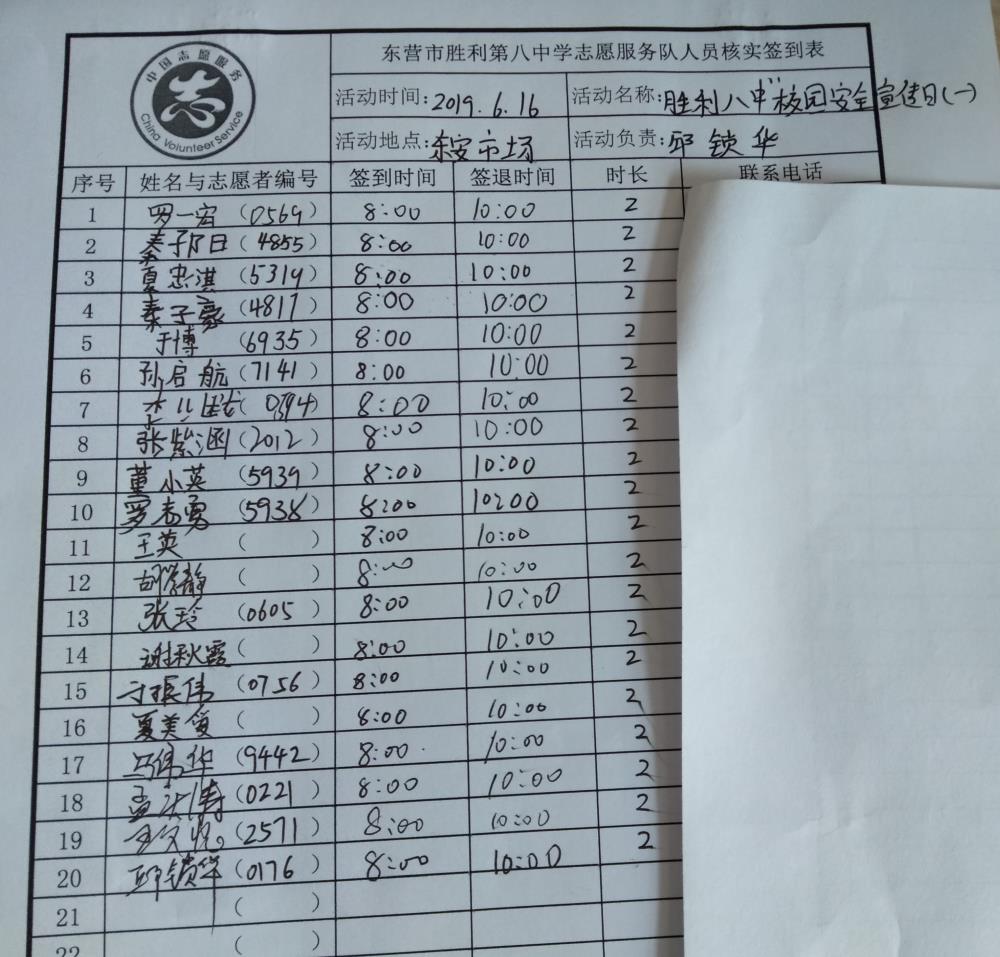 中国志愿服务
China Volunteer Service
东营市胜利第八中学志愿服务队人员核实签到表
活动时间:2019.6.16 活动名称:胜利八中"校园安全宣传日(一)
活动地点:东安市场 活动负责:邱锁华
序号 姓名与志愿者编号 签到时间 签退时间 时长 联系电话
1 罗一宏 (0569) 8:00 10:00 2
2 秦子阳 (4855) 8:00 10:00 2
3 夏忠淇 (5319) 8:00 10:00 2
4 秦子豪 (4817) 8:00 10:00 2
5 于博 (6935) 8:00 10:00 2
6 孙启航 (7141) 8:00 10:00 2
7 8:00 10:00 2
8 张紫涵 (2012) 8:00 10:00 2
9 董小英 (5939) 8:00 10:00 2
10 罗志勇 (5938) 8:00 10:00 2
11 王英 ( ) 8:00 10:00 2
12 胡 静 ( ) 8:00 10:00 2
13 张玲 (0605) 8:00 10:00 2
14 谢秋霞 ( ) 8:00 10:00 2
15 于振伟 (0756) 8:00 10:00 2
16 夏美爱 ( ) 8:00 10:00 2
17 马伟华 (9442) 8:00 10:00 2
18 孟庆涛 (0221) 8:00 10:00 2
19 (2571) 8:00 10:00 2
20 邱锁华 (0176) 8:00 10:00 2
21 ( )
22 ( )